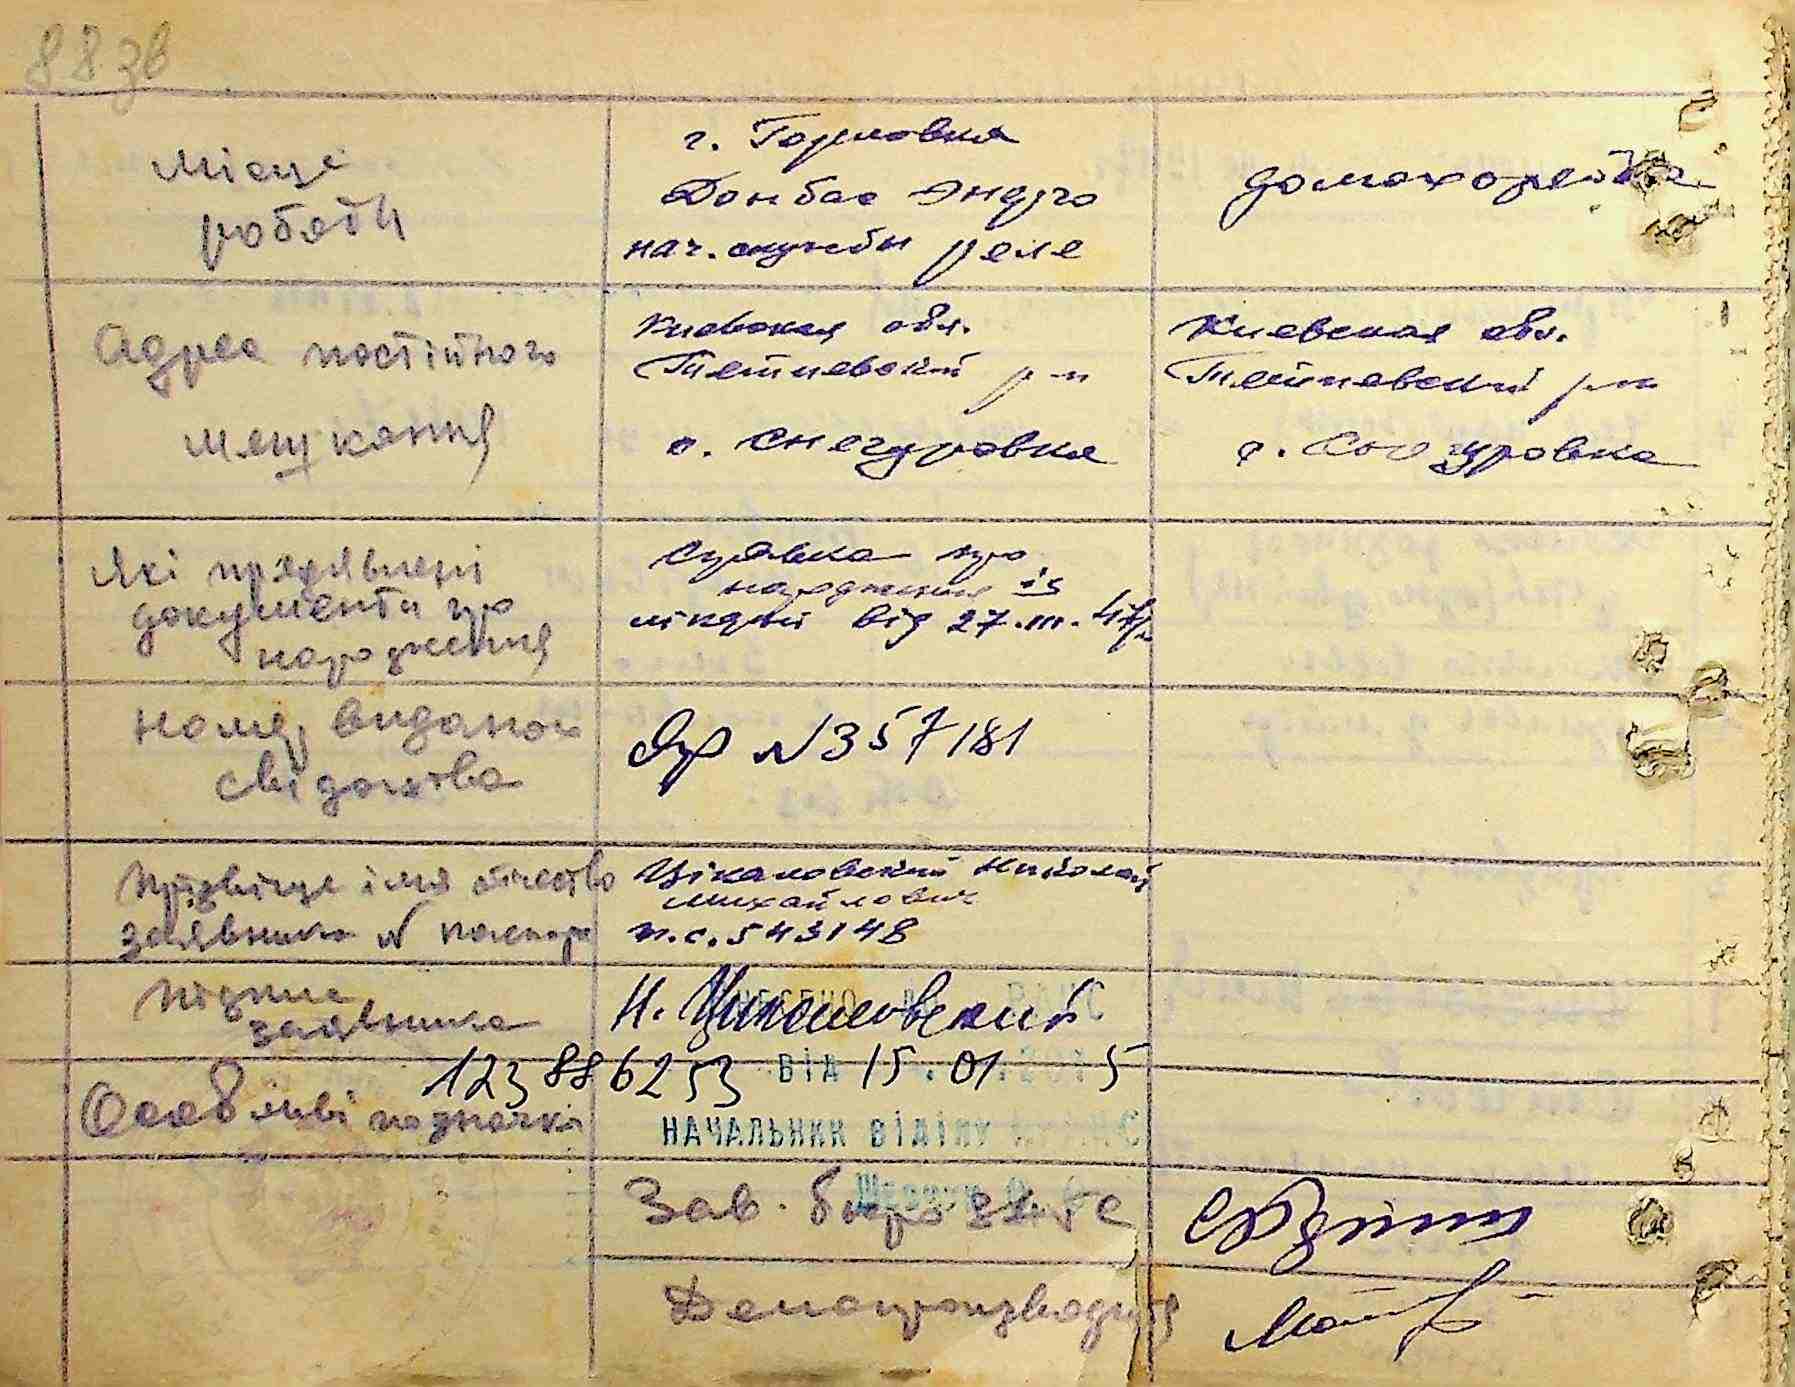 88 зв
Місце
роботи
г. Горловка
Донбас Энерго
нач. службы реле
домохозяйка
Адрес постійного
мешкання
Киевская обл.
Тетиевский р-н
с. Снегуровка
Киевская обл.
Тетиевский р-н
с. Снегуровка
Які предявлені
документи про
народження
Справка про
народження із
лікарні від 27.III.47р
Номер виданого
свідоцтва
№ 357181
Прізвище імя отчество
заявника № паспорта
Цікаловский Николай
Михайлович
п.с. 543148
Підпис
заявника
Н. Цикаловский
ВНЕСЕНО ДО РАЦС
123886253 ВІД 15.01. 2015
НАЧАЛЬНИК ВІДІЛУ
Особливі позначки
Зав. бюро ЗАГСа
Делопроизводитель